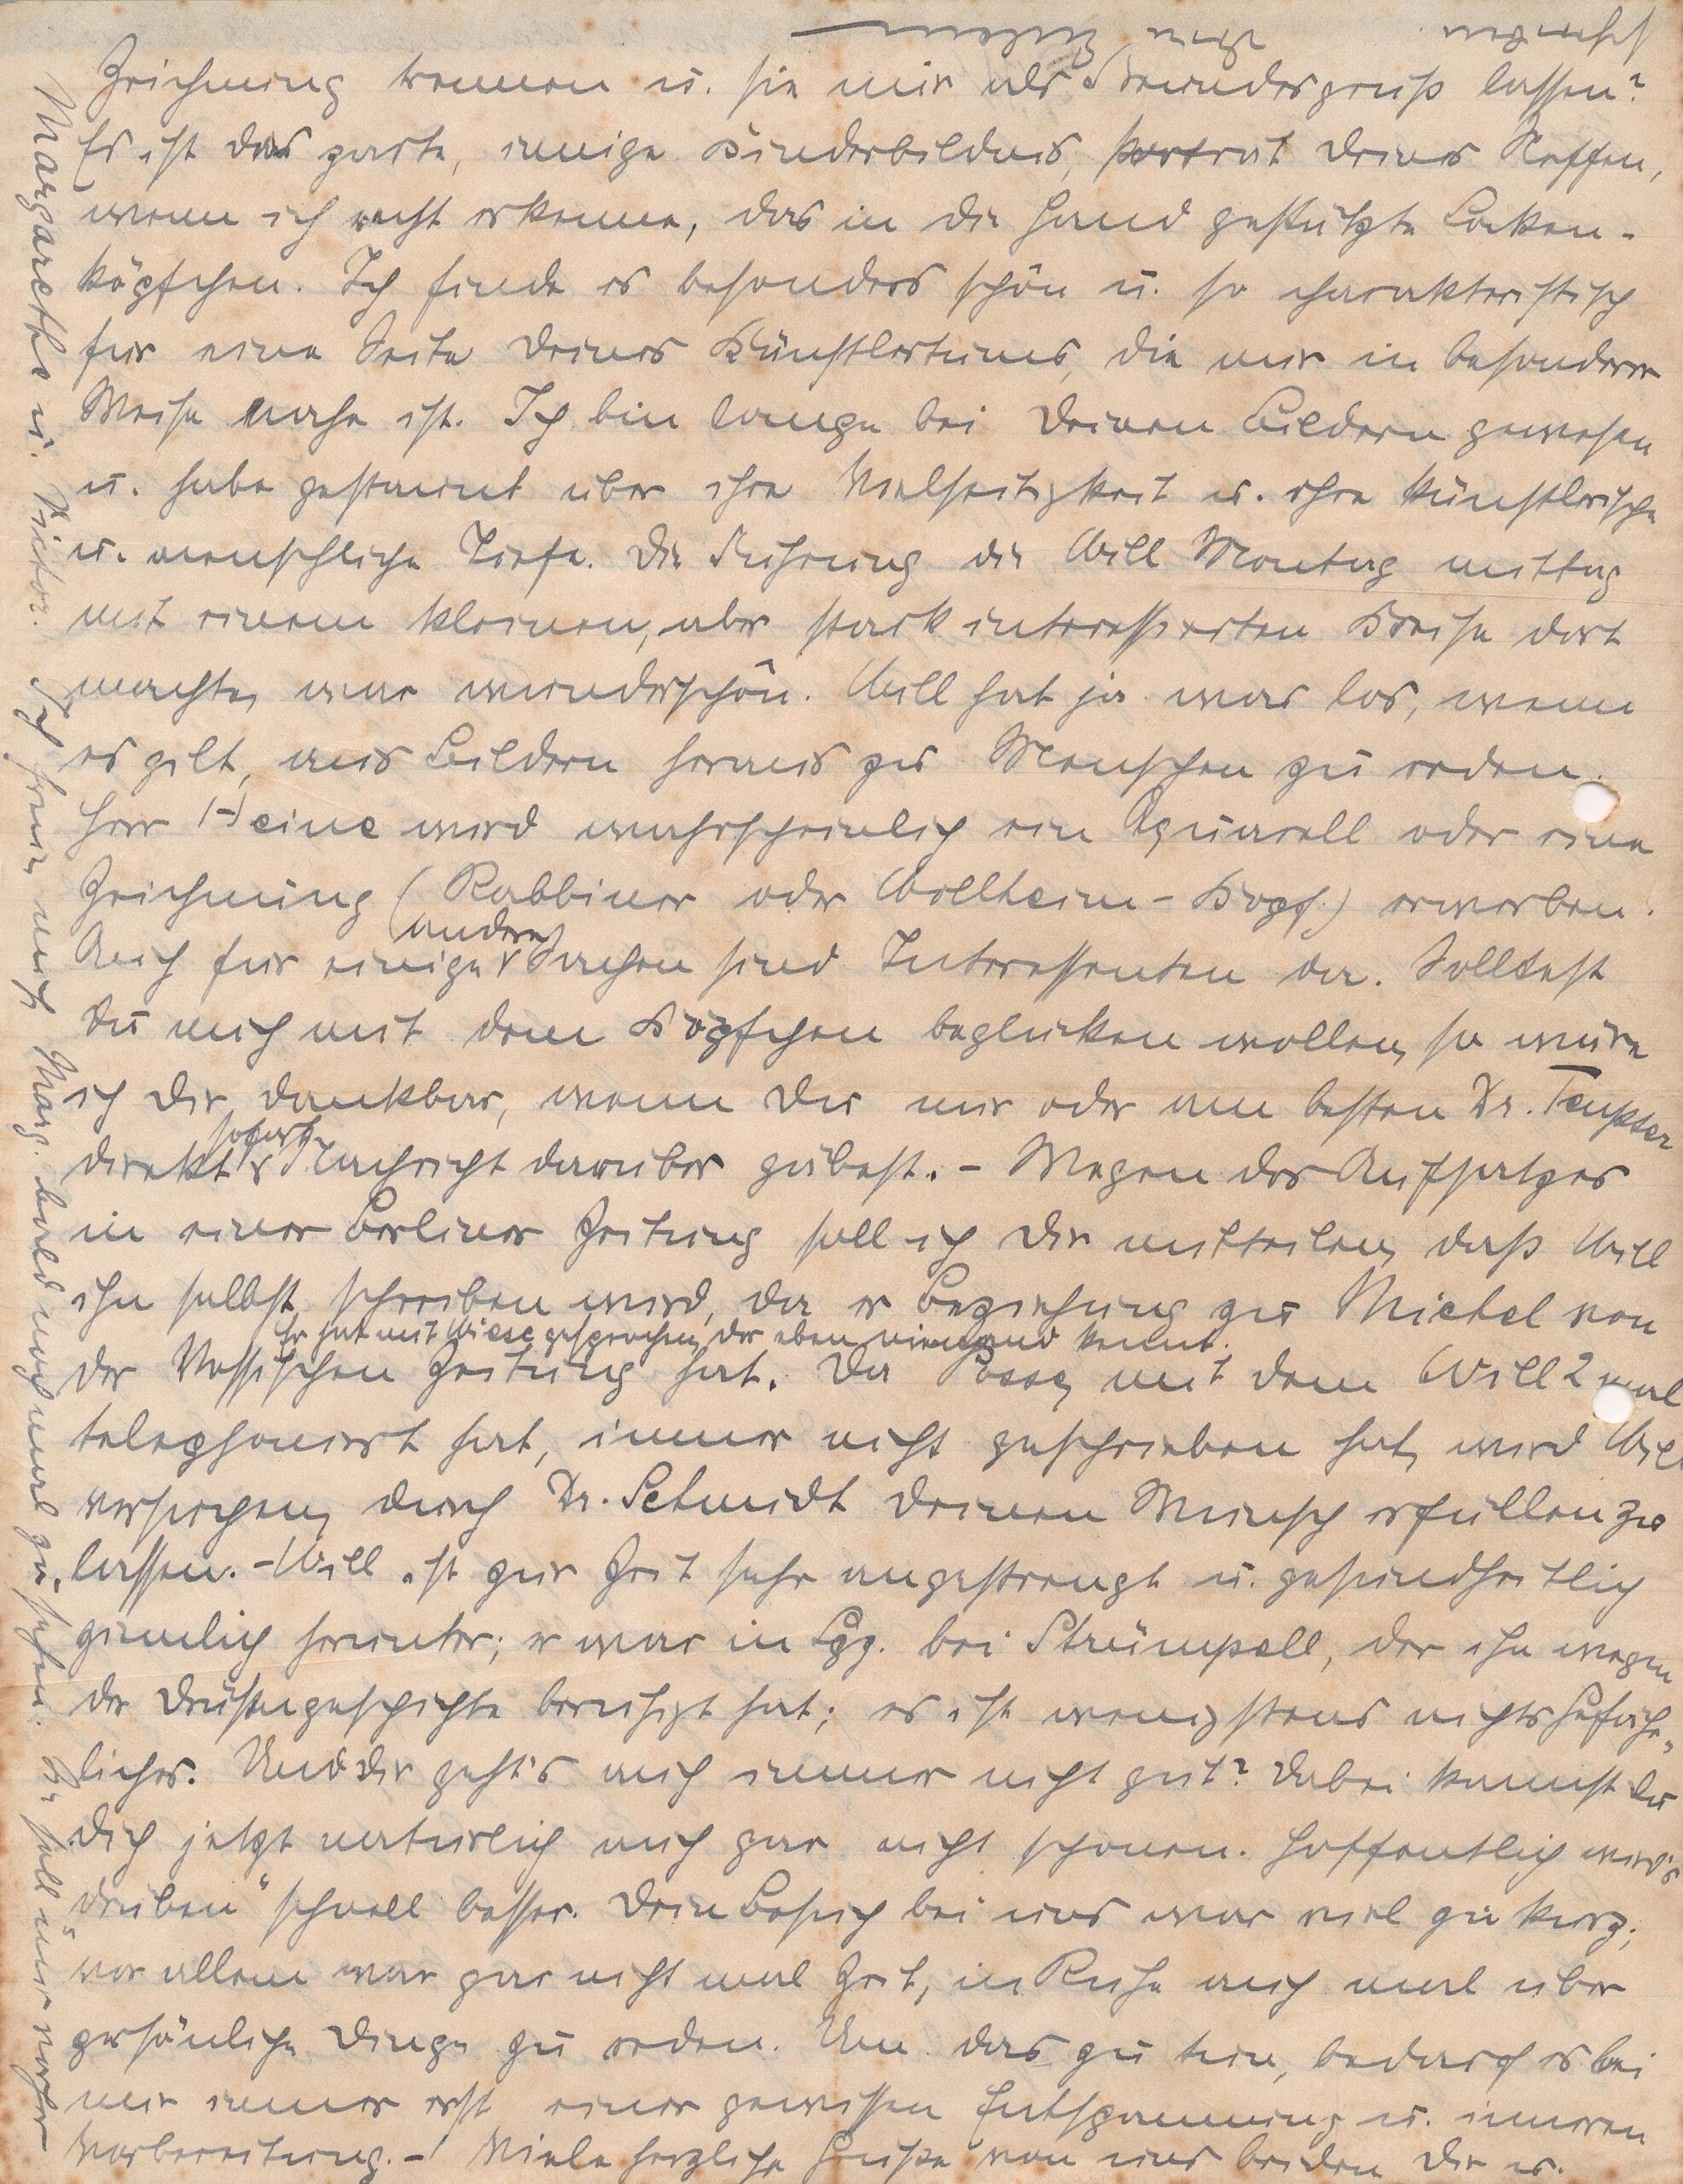 Zeichnung trennen u. sie mir als Freundesgruß lassen?
Es ist das zarte, innige Kinderbildnis, Porträt Deines Neffen,
wenn ich recht erkenne, das in die Hand gestützte Locken-
köpfchen. Ich finde es besonders schön u. so charakteristisch
für eine Seite Deines Künstlertums, die mir in besonderer
Weise nahe ist. Ich bin lange bei Deinen Bildern gewesen
u. habe gestaunt über ihre Vielseitigkeit u. ihre künstlerische
u. menschliche Tiefe. Die Führung die Will Montag mittag
mit einem kleinen, aber stark interessierten Kreise dort
machte, war wunderschön. Will hat ja was los, wenn
es gilt, aus Bildern heraus zu Menschen zu reden.
Herr Heine wird wahrscheinlich ein Aquarell oder eine
Zeichnung (Rabbiner oder Wollheim-Kopf) erwerben.
Auch für einige andere Sachen sind Interessenten da. Solltest
Du mich mit dem Köpfchen beglücken wollen, so wäre
ich Dir dankbar, wenn Du mir oder am besten Dr.
direkt sofort Nachricht darüber gäbest. - Wegen des Aufsatzes
in einer Berliner Zeitung soll ich Dir mitteilen, daß Will
ihn selbst schreiben wird, da er Beziehung zu Michel von
der Vossischen Zeitung hat. Er hat mit Wiese gesprochen, der eben niemand kennt.
Da Posse, mit dem Will 2 mal
telephoniert hat, immer nicht geschrieben hat, wird Will
versuchen, durch Dr. Schmidt Deinen Wunsch erfüllen zu
lassen. - Will ist zur Zeit sehr angestrengt u. gesundheitlich
ziemlich herunter; er war in Lpz. bei Strümpell, der ihn wegen
der Drüsengeschichte beruhigt hat; es ist wenigstens nichts Gefähr-
liches. Und Dir geht's auch immer nicht gut? Dabei kannst Du
Dich jetzt natürlich auch gar nicht schonen. Hoffentlich wird's
"drüben" schnell besser. Dein Besuch bei uns war viel zu kurz;
vor allem war gar nicht mal Zeit, in Ruhe auch mal über
persönliche Dinge zu reden. Um das zu tun, bedarf es bei
mir immer erst einer gewissen Entspannung u. inneren
Vorbereitung. - Viele herzliche Grüße von uns beiden Dir u.
Margarethe u. Victor. Ich freue mich Marg. bald noch mal zu sehen. Sie soll nur vorher
schreiben